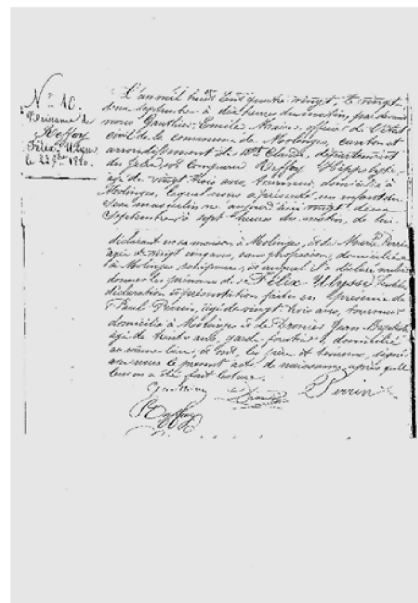 N° 10.
Naissance de
Reffay
Félix Ulysse
le 22 7bre 1880.
L'an mil huit cent quatre vingt, le vingt
deux septembre à dix heures du matin, par devant
nous Gauthier, Emile Maire, officier de l'état
civil de la commune de Molinges, canton et
arrondissement de St Claude, département
du Jura, est comparu Reffay Hippolyte,
âgé de vingt trois ans, tourneur, domicilié à
Molinges, lequel nous a présenté un enfant du
sexe masculin né aujourd'hui vingt deux
septembre à sept heures du matin, de lui
déclarant en sa maison à Molinges, et de Marie Perrin
âgée de vingt cinq ans, sans profession, domiciliée
à Molinges son épouse, et auquel il a déclaré vouloir
donner les prénoms de Félix Ulysse
déclaration et présentation faites en présence de
Paul Perrin, âgé de vingt trois ans, tourneur
domicilié à Molinges et de Jean Baptiste
âgé de trente ans, garde forestier, domicilié
au même lieu, et ont, les père et témoins, signé
avec nous le présent acte de naissance, après qu'il
leur en a été fait lecture.
Gauthier
P. Perrin
Reffay